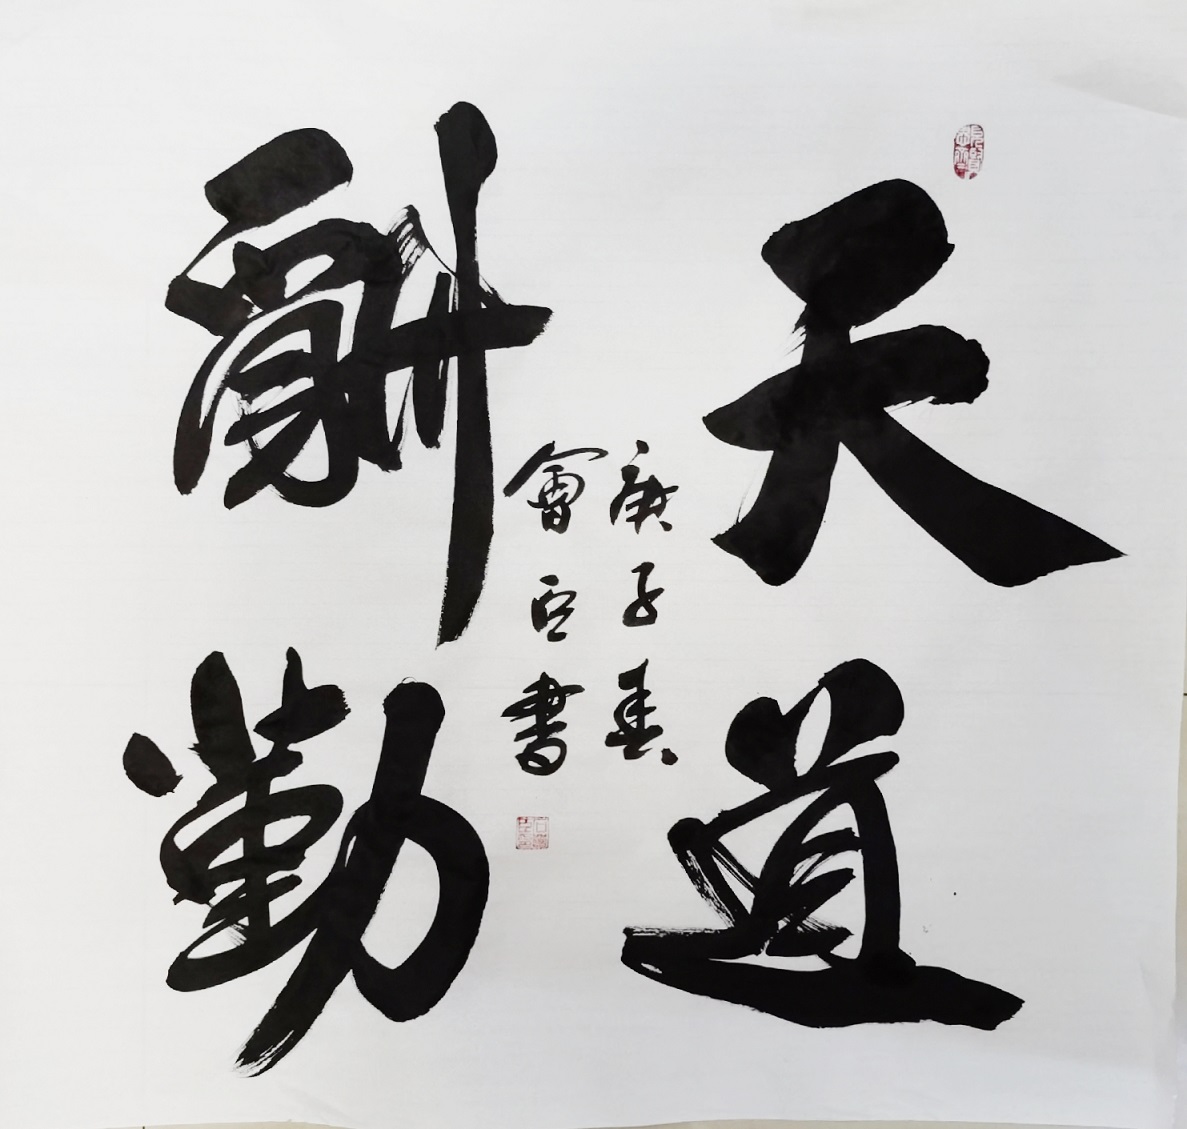 天道
酬勤
庚子春
會 書